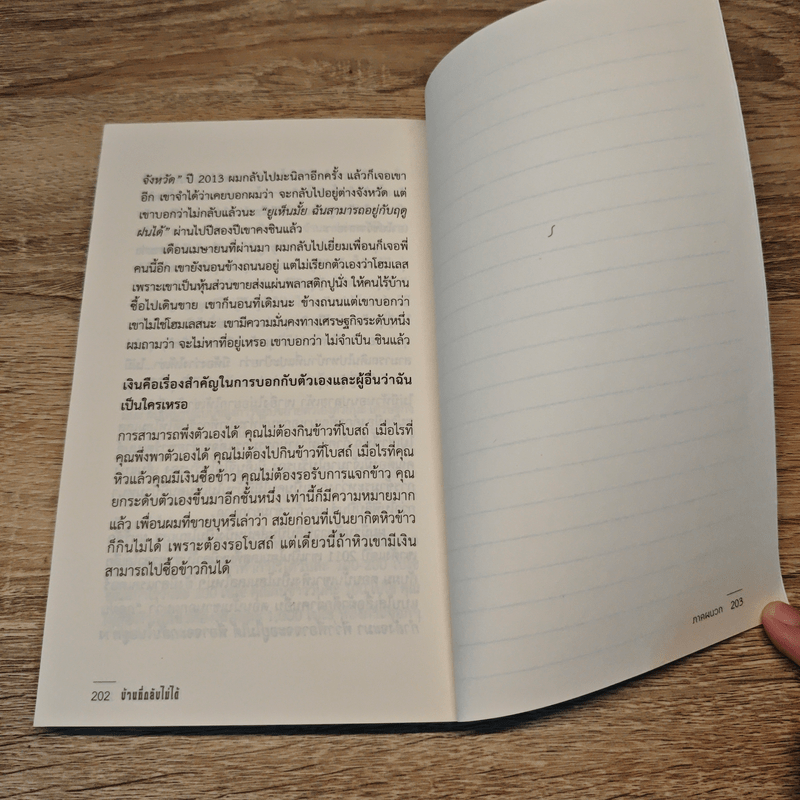 จังหวัด” ปี 2013 ผมกลับไปมะนิลาอีกครั้ง แล้วก็เจอเขา
อีก เขาจำได้ว่าเคยบอกผมว่า จะกลับไปอยู่ต่างจังหวัด แต่
เขาบอกว่าไม่กลับแล้วนะ “ยูเห็นมั้ย ฉันสามารถอยู่กับฤดู
ฝนได้” ผ่านไปปีสองปีเขาคงชินแล้ว
เดือนเมษายนที่ผ่านมา ผมกลับไปเยี่ยมเพื่อนก็เจอพี่
คนนี้อีก เขายังนอนข้างถนนอยู่ แต่ไม่เรียกตัวเองว่าโฮมเลส
เพราะเขาเป็นหุ้นส่วนขายส่งแผ่นพลาสติกปูนั่ง ให้คนไร้บ้าน
ซื้อไปเดินขาย เขาก็นอนที่เดิมนะ ข้างถนนแต่เขาบอกว่า
เขาไม่ใช่โฮมเลสนะ เขามีความมั่นคงทางเศรษฐกิจระดับหนึ่ง
ผมถามว่า จะไม่หาที่อยู่เหรอ เขาบอกว่า ไม่จำเป็น ชินแล้ว
เงินคือเรื่องสำคัญในการบอกกับตัวเองและผู้อื่นว่าฉัน
เป็นใครเหรอ
การสามารถพึ่งตัวเองได้ คุณไม่ต้องกินข้าวที่โบสถ์ เมื่อไรที่
คุณพึ่งพาตัวเองได้ คุณไม่ต้องไปกินข้าวที่โบสถ์ เมื่อไรที่คุณ
หิวแล้วคุณมีเงินซื้อข้าว คุณไม่ต้องรอรับการแจกข้าว คุณ
ยกระดับตัวเองขึ้นมาอีกชั้นหนึ่ง เท่านี้ก็มีความหมายมาก
แล้ว เพื่อนผมที่ขายบุหรี่เล่าว่า สมัยก่อนที่เป็นยาจิตหิวข้าว
ก็กินไม่ได้ เพราะต้องรอโบสถ์ แต่เดี๋ยวนี้ถ้าหิวเขามีเงิน
สามารถไปซื้อข้าวกินได้
202 บ้านที่กลับไม่ได้
ภาคผนวก 203